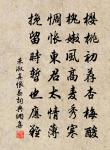 櫻桃初薦杏梅酸
槐嫩風高麥秀寒
惆悵東君太情薄
挽留時暫也應難
朱淑真恨春